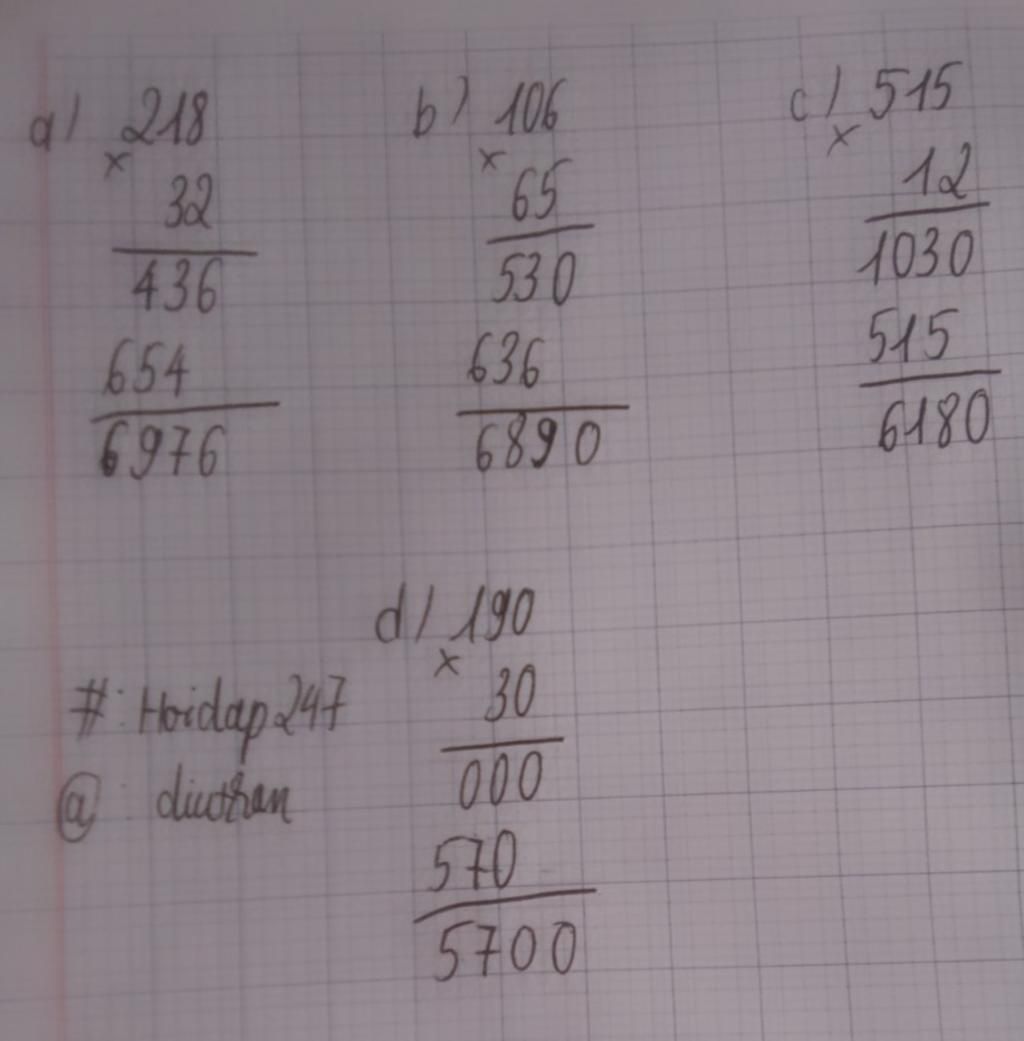 a) 218
x
32
436
654
6976
b) 106
x
65
530
636
6890
c) 515
x
12
1030
515
6180
d) 190
x
30
000
570
5700
#: Hoidap247
@: